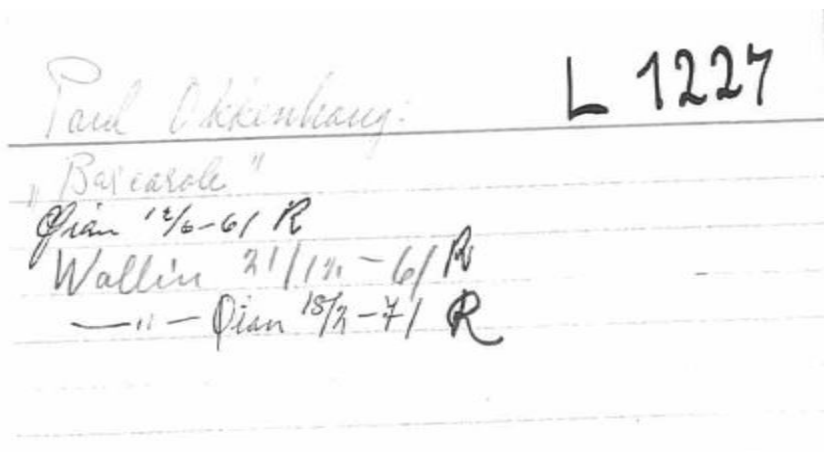 L 1227
Paul Okkenhaug:
„Barcarole"
Qian 12/6-61 R
Wallin 21/12-61 R
—"— Qian 18/2-71 R